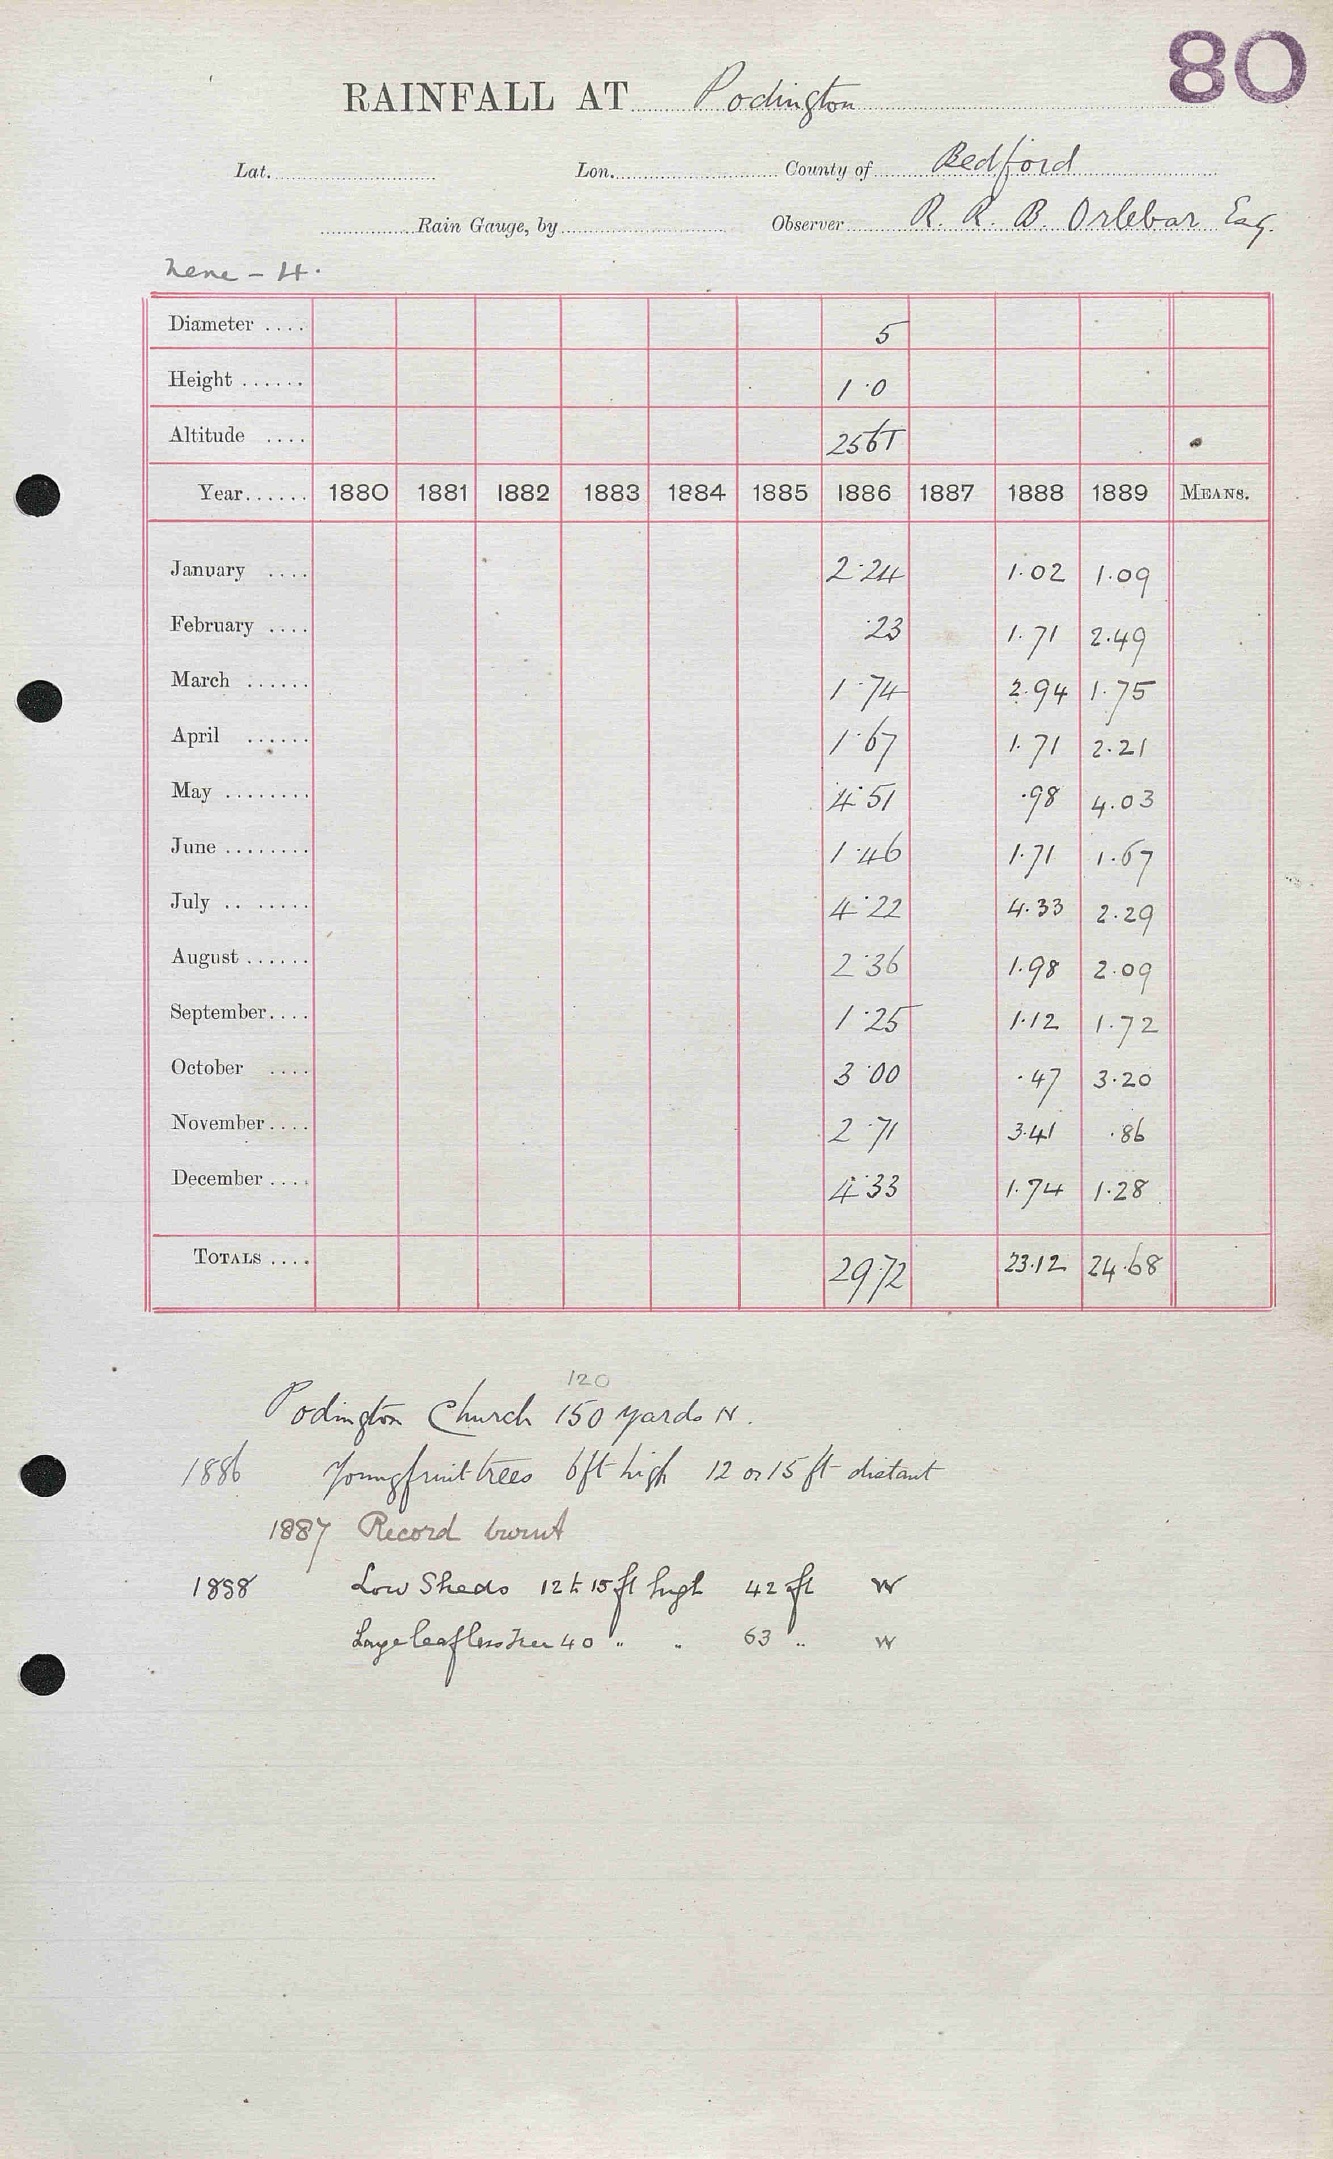 80
RAINFALL AT Podington
Lat. Lon. County of Bedford
Rain Gauge, by Observer R. R. B. Orlebar Esq.
Nene - H.
Diameter .... 5
Height ...... 1·0
Altitude .... 256T
Year...... 1880 1881 1882 1883 1884 1885 1886 1887 1888 1889 MEANS.
January .... 2·24 1.02 1.09
February .... ·23 1.71 2.49
March ...... 1·74 2.94 1.75
April ...... 1·67 1.71 2.21
May ........ 4·51 .98 4.03
June ........ 1·46 1.71 1.67
July .. ..... 4·22 4.33 2.29
August ...... 2·36 1.98 2.09
September.... 1·25 1.12 1.72
October .... 3·00 .47 3.20
November.... 2·71 3.41 .86
December .... 4·33 1.74 1.28
TOTALS .... 29·72 23.12 24.68
120
Podington Church 150 yards N.
1886 Young fruit trees 6ft high 12 or 15 ft distant
1887 Record burnt
1888 Low Sheds 12 to 15 ft high 42 ft W
Large leafless Tree 40 " " 63 " W